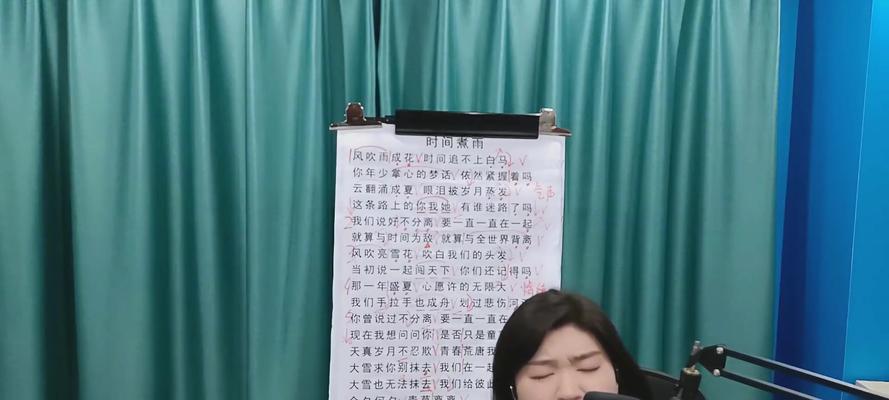 时间煮雨
风吹雨成花 时间追不上白马
你年少掌心的梦话 依然紧握着吗
云翻涌成夏 眼泪被岁月蒸发 气声
这条路上的你我她 有谁迷路了吗
我们说好不分离 要一直一直在一起
就算与时间为敌 就算与全世界背离
风吹亮雪花 吹白我们的头发
当初说一起闯天下 你们还记得吗
那一年盛夏 心愿许的无限大
我们手拉手也成舟 划过悲伤河
你曾说过不分离 要一直一直在
现在我想问问你 是否只是童
天真岁月不忍欺 青春荒唐我
大雪求你别抹去 我们在一起
大雪也无法抹去 我们给彼此